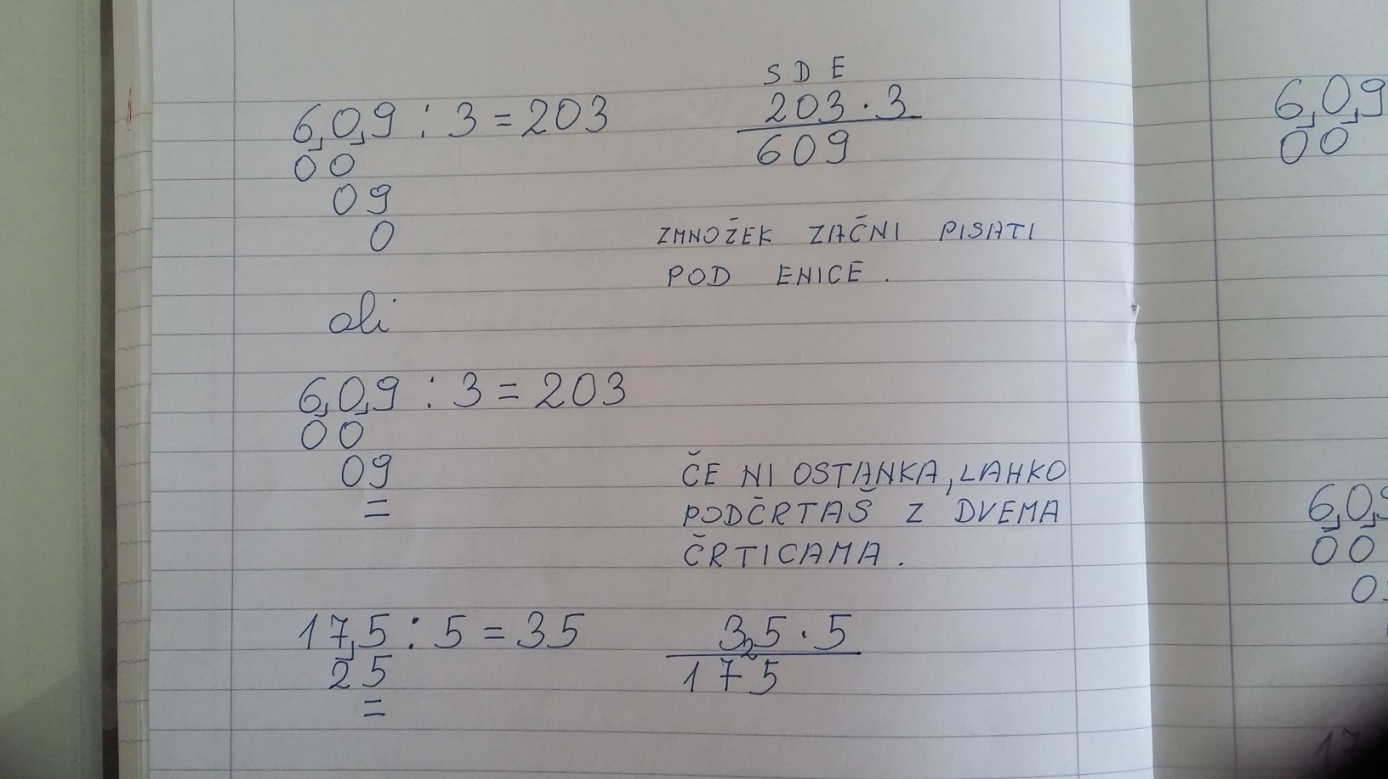 S D E
6,0,9 : 3 = 203
203 · 3
00
609
09
0
ZMNOŽEK ZAČNI PISATI
POD ENICE.
ali
6,0,9 : 3 = 203
00
09
=
ČE NI OSTANKA, LAHKO
PODČRTAŠ Z DVEMA
ČRTICAMA.
17,5 : 5 = 35
3,5 · 5
2
25
175
=
6,0,9
00
6,0,9
00
0
17